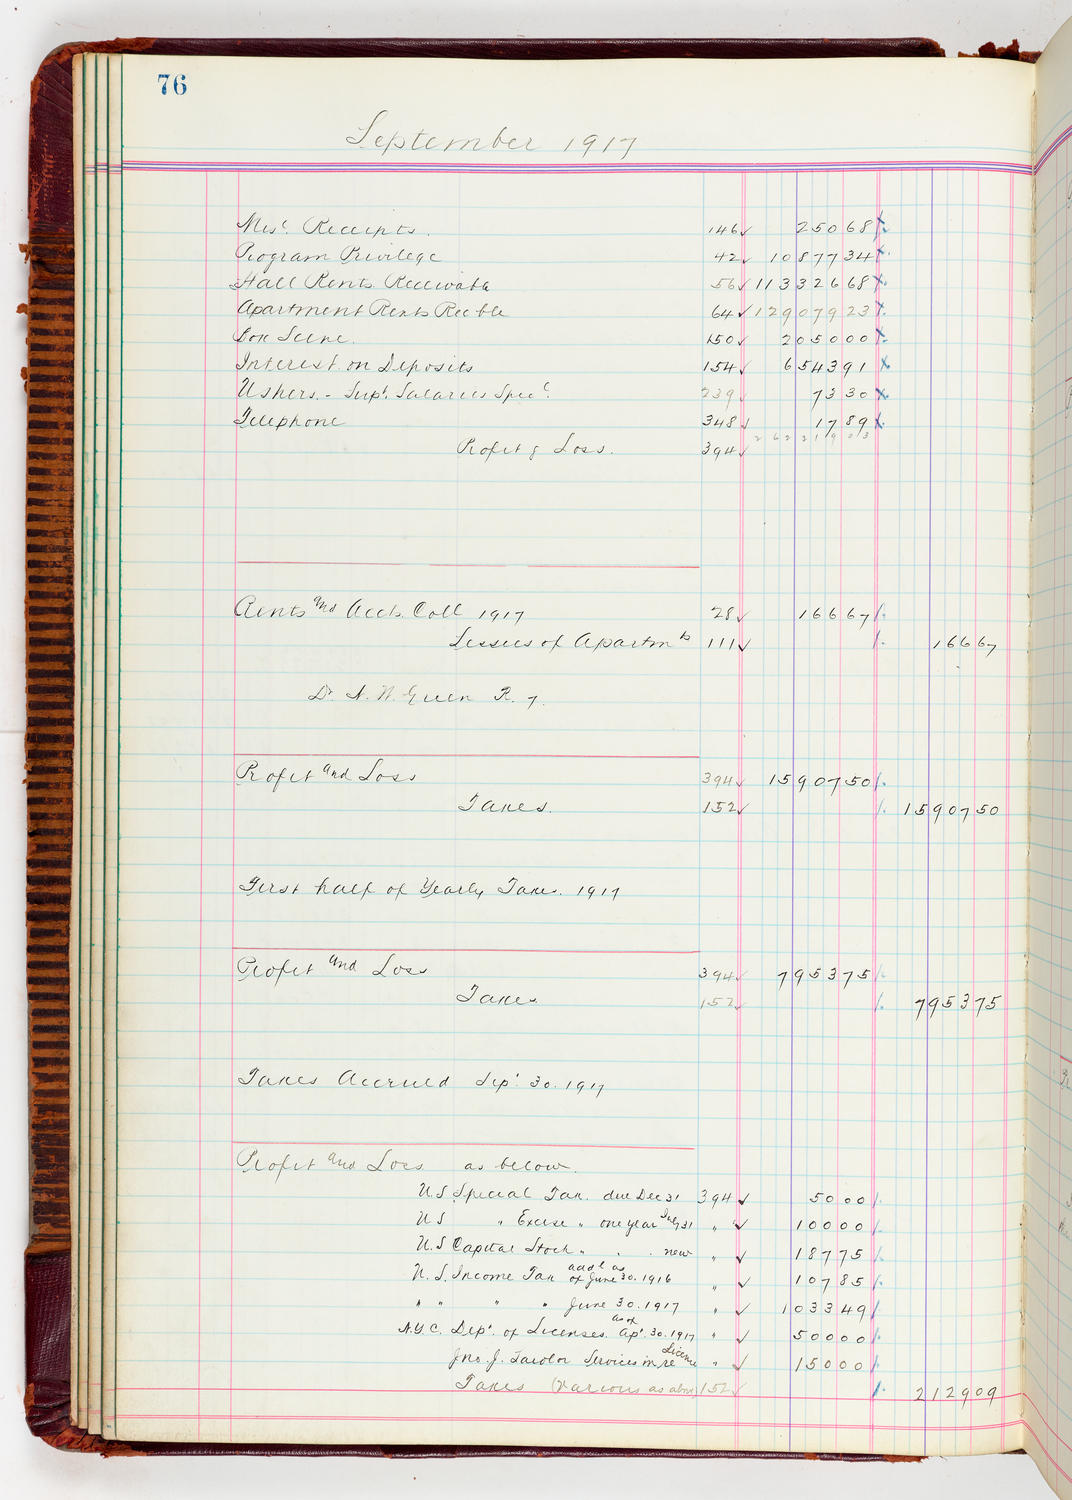 76
September 1917
Misc. Receipts. 146 ✓ 250 68
Program Privilege 42 ✓ 10877 34
Hall Rents Receivable 56 ✓ 113326 68
Apartment Rents Rec'ble 64 ✓ 129079 23
150 ✓ 2050 00
Interest on Deposits 154 ✓ 6543 91
Ushers - Supt. Salaries Spec'l 239 ✓ 73 30
Telephone 348 ✓ 17 89
Profit & Loss. 394 ✓ 262219 03
Rents and Accts. Coll 1917 28 ✓ 166 67
Lessees of Apartmts 111 ✓ 166 67
Dr. N. Green R. 7.
Profit and Loss 394 ✓ 15907 50
Taxes. 152 ✓ 15907 50
First half of Yearly Taxes. 1917
Profit and Loss 394 ✓ 7953 75
Taxes 152 ✓ 7953 75
Taxes Accrued Sep' 30. 1917
Profit and Loss as below.
U S Special Tax. due Dec 31 394 ✓ 50 00
U S " Excise " one year July 31 " ✓ 100 00
U. S Capital Stock " . . new " ✓ 187 75
U. S. Income Tax add'l as of June 30. 1916 " ✓ 107 85
" " " " June 30. 1917 " ✓ 1033 49
N.Y.C. Dep't. of Licenses. as of Ap'. 30. 1917 " ✓ 500 00
Jno. J. Services in re License " ✓ 150 00
Taxes (various as above) 152 ✓ 2129 09